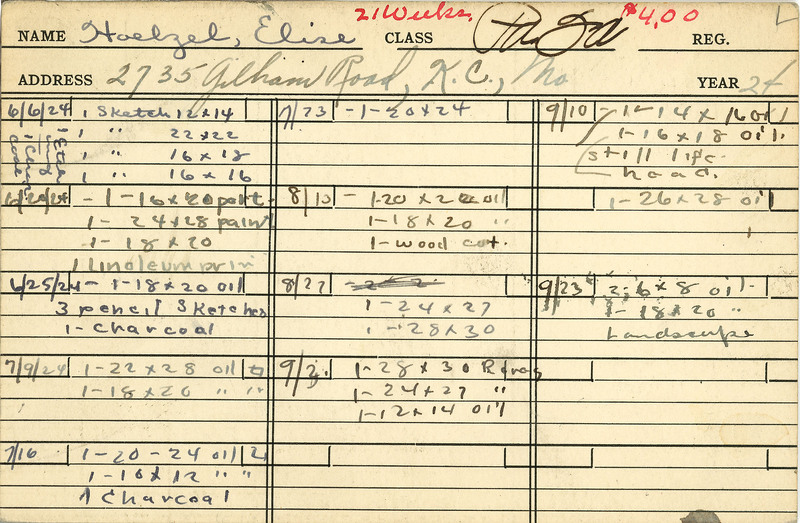 21 Weeks. $4.00
NAME Hoelzel, Elise CLASS REG.
ADDRESS 2735 Gilham Road, K.C., Mo YEAR 24
6/6/24 1 Sketch 12 x 14
1 " 22 x 22
1 " 16 x 18
1 " 16 x 16
- 1 - 16 x 20 port.
1 - 24 x 28 paint
1 - 18 x 20
1 Linoleum prin
6/25/24 - 1 - 18 x 20 oil
3 pencil Sketches
1 - charcoal
7/9/24 1 - 22 x 28 oil
1 - 18 x 20 " "
7/16 1 - 20 - 24 oil
1 - 10 x 12 " "
1 Charcoal
7/23 - 1 - 20 x 24
8/13 - 1 - 20 x 22 oil
1 - 18 x 20 "
1 - wood cut.
8/27
1 - 24 x 27
1 - 28 x 30
9/2. 1 - 28 x 30
1 - 24 x 27 "
1 - 12 x 14 oil
9/10 - 1 - 14 x 16 oil
1 - 16 x 18 oil.
still life.
head.
1 - 26 x 28 oil
9/23 2; 6 x 8 oil.
1 - 18 x 20 "
Landscape